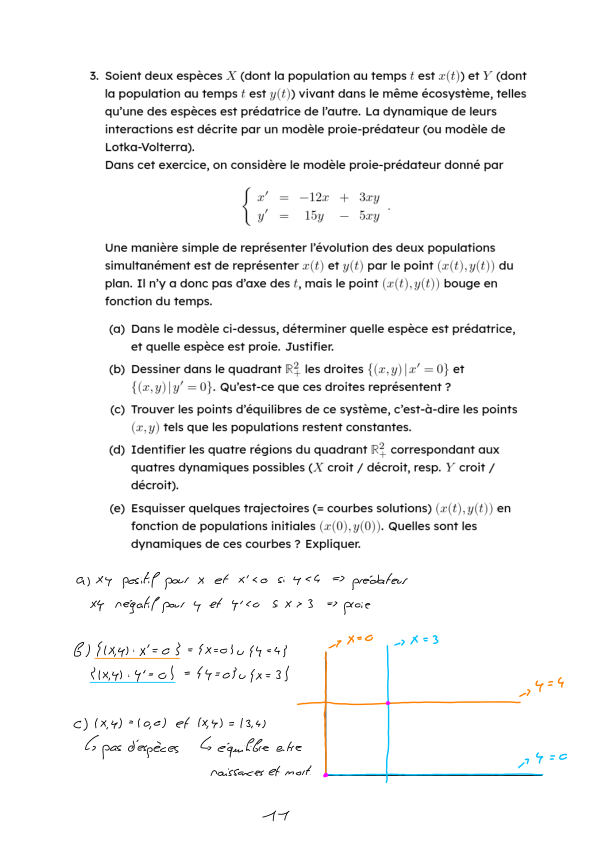 3. Soient deux espèces X (dont la population au temps t est x(t)) et Y (dont
la population au temps t est y(t)) vivant dans le même écosystème, telles
qu'une des espèces est prédatrice de l'autre. La dynamique de leurs
interactions est décrite par un modèle proie-prédateur (ou modèle de
Lotka-Volterra).
Dans cet exercice, on considère le modèle proie-prédateur donné par
{ x′ = −12x + 3xy
y′ = 15y − 5xy .
Une manière simple de représenter l'évolution des deux populations
simultanément est de représenter x(t) et y(t) par le point (x(t), y(t)) du
plan. Il n'y a donc pas d'axe des t, mais le point (x(t), y(t)) bouge en
fonction du temps.
(a) Dans le modèle ci-dessus, déterminer quelle espèce est prédatrice,
et quelle espèce est proie. Justifier.
(b) Dessiner dans le quadrant ℝ²₊ les droites {(x, y) | x′ = 0} et
{(x, y) | y′ = 0}. Qu'est-ce que ces droites représentent ?
(c) Trouver les points d'équilibres de ce système, c'est-à-dire les points
(x, y) tels que les populations restent constantes.
(d) Identifier les quatre régions du quadrant ℝ²₊ correspondant aux
quatres dynamiques possibles (X croit / décroit, resp. Y croit /
décroit).
(e) Esquisser quelques trajectoires (= courbes solutions) (x(t), y(t)) en
fonction de populations initiales (x(0), y(0)). Quelles sont les
dynamiques de ces courbes ? Expliquer.
a) xy positif pour x et x'<0 si y<4 => prédateur
xy négatif pour y et y'<0 si x>3 => proie
b) {(x,y) · x'=0} = {x=0} ∪ {y=4}
{(x,y) · y'=0} = {y=0} ∪ {x=3}
x=0
x=3
y=4
y=0
c) (x,y) = (0,0) et (x,y) = (3,4)
↳ pas d'espèces ↳ équilibre etre
naissances et mort
11